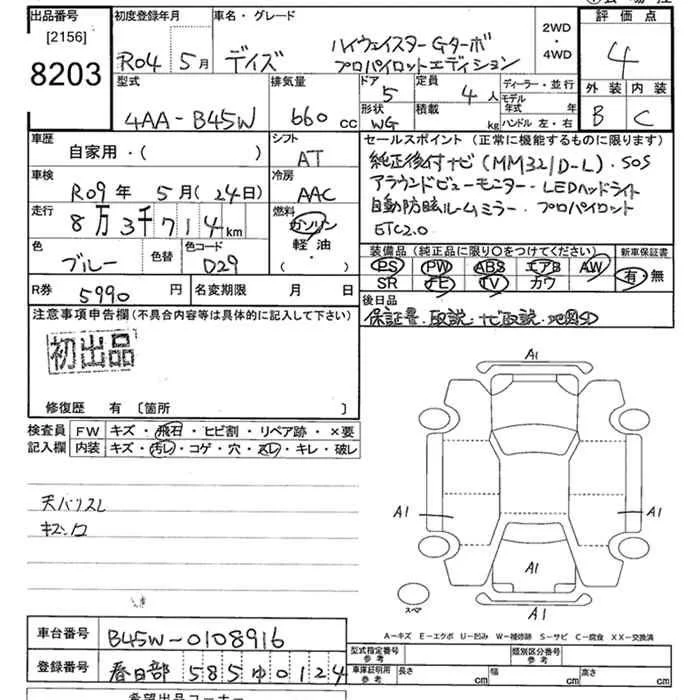 出品番号
[2156]
8203
初度登録年月
R04 5月
車名・グレード
デイズ
ハイウェイスター Gターボ
プロパイロットエディション
2WD
・
4WD
評価点
4
外装 内装
B C
型式
4AA-B45W
排気量
660 cc
ドア
5
定員
4 人
形状
WG
積載
kg
ディーラー・並行
モデル年式 年
ハンドル 左・右
車歴
自家用・( )
シフト
AT
車検
R09年 5月(24日)
冷房
AAC
走行
8万3千714km
燃料
ガソリン
軽油
( ・ )
色
ブルー
色替
色コード
D29
セールスポイント(正常に機能するものに限ります)
純正後付ナビ(MM321D-L)・SOS
アラウンドビューモニター・LEDヘッドライト
自動防眩ルームミラー・プロパイロット
ETC2.0
装備品(純正品に限り○をつけてください)
PS PW ABS エアB AW
SR ナビ TV カワ
新車保証書
有・無
R券 5990 円
名変期限 月 日
後日品
保証書・取説・ナビ取説・地図SD
注意事項申告欄(不具合内容等は具体的に記入して下さい)
初出品
修復歴 有〔箇所 〕
検査員記入欄
FW キズ・飛石・ヒビ割・リペア跡・×要
内装 キズ・汚レ・コゲ・穴・スレ・キレ・破レ
天バリスレ
キズ、凹
A1
A1
A1
A1
A1
スペア
A-キズ E-エクボ U-凹み W-補修跡 S-サビ C-腐食 XX-交換済
車台番号 B45W-0108916
登録番号 春日部 585 ゆ 0124
型式指定番号 参考
類別区分番号 参考
車庫証明用 参考
長さ cm 幅 cm 高さ cm
希望出品コーナー